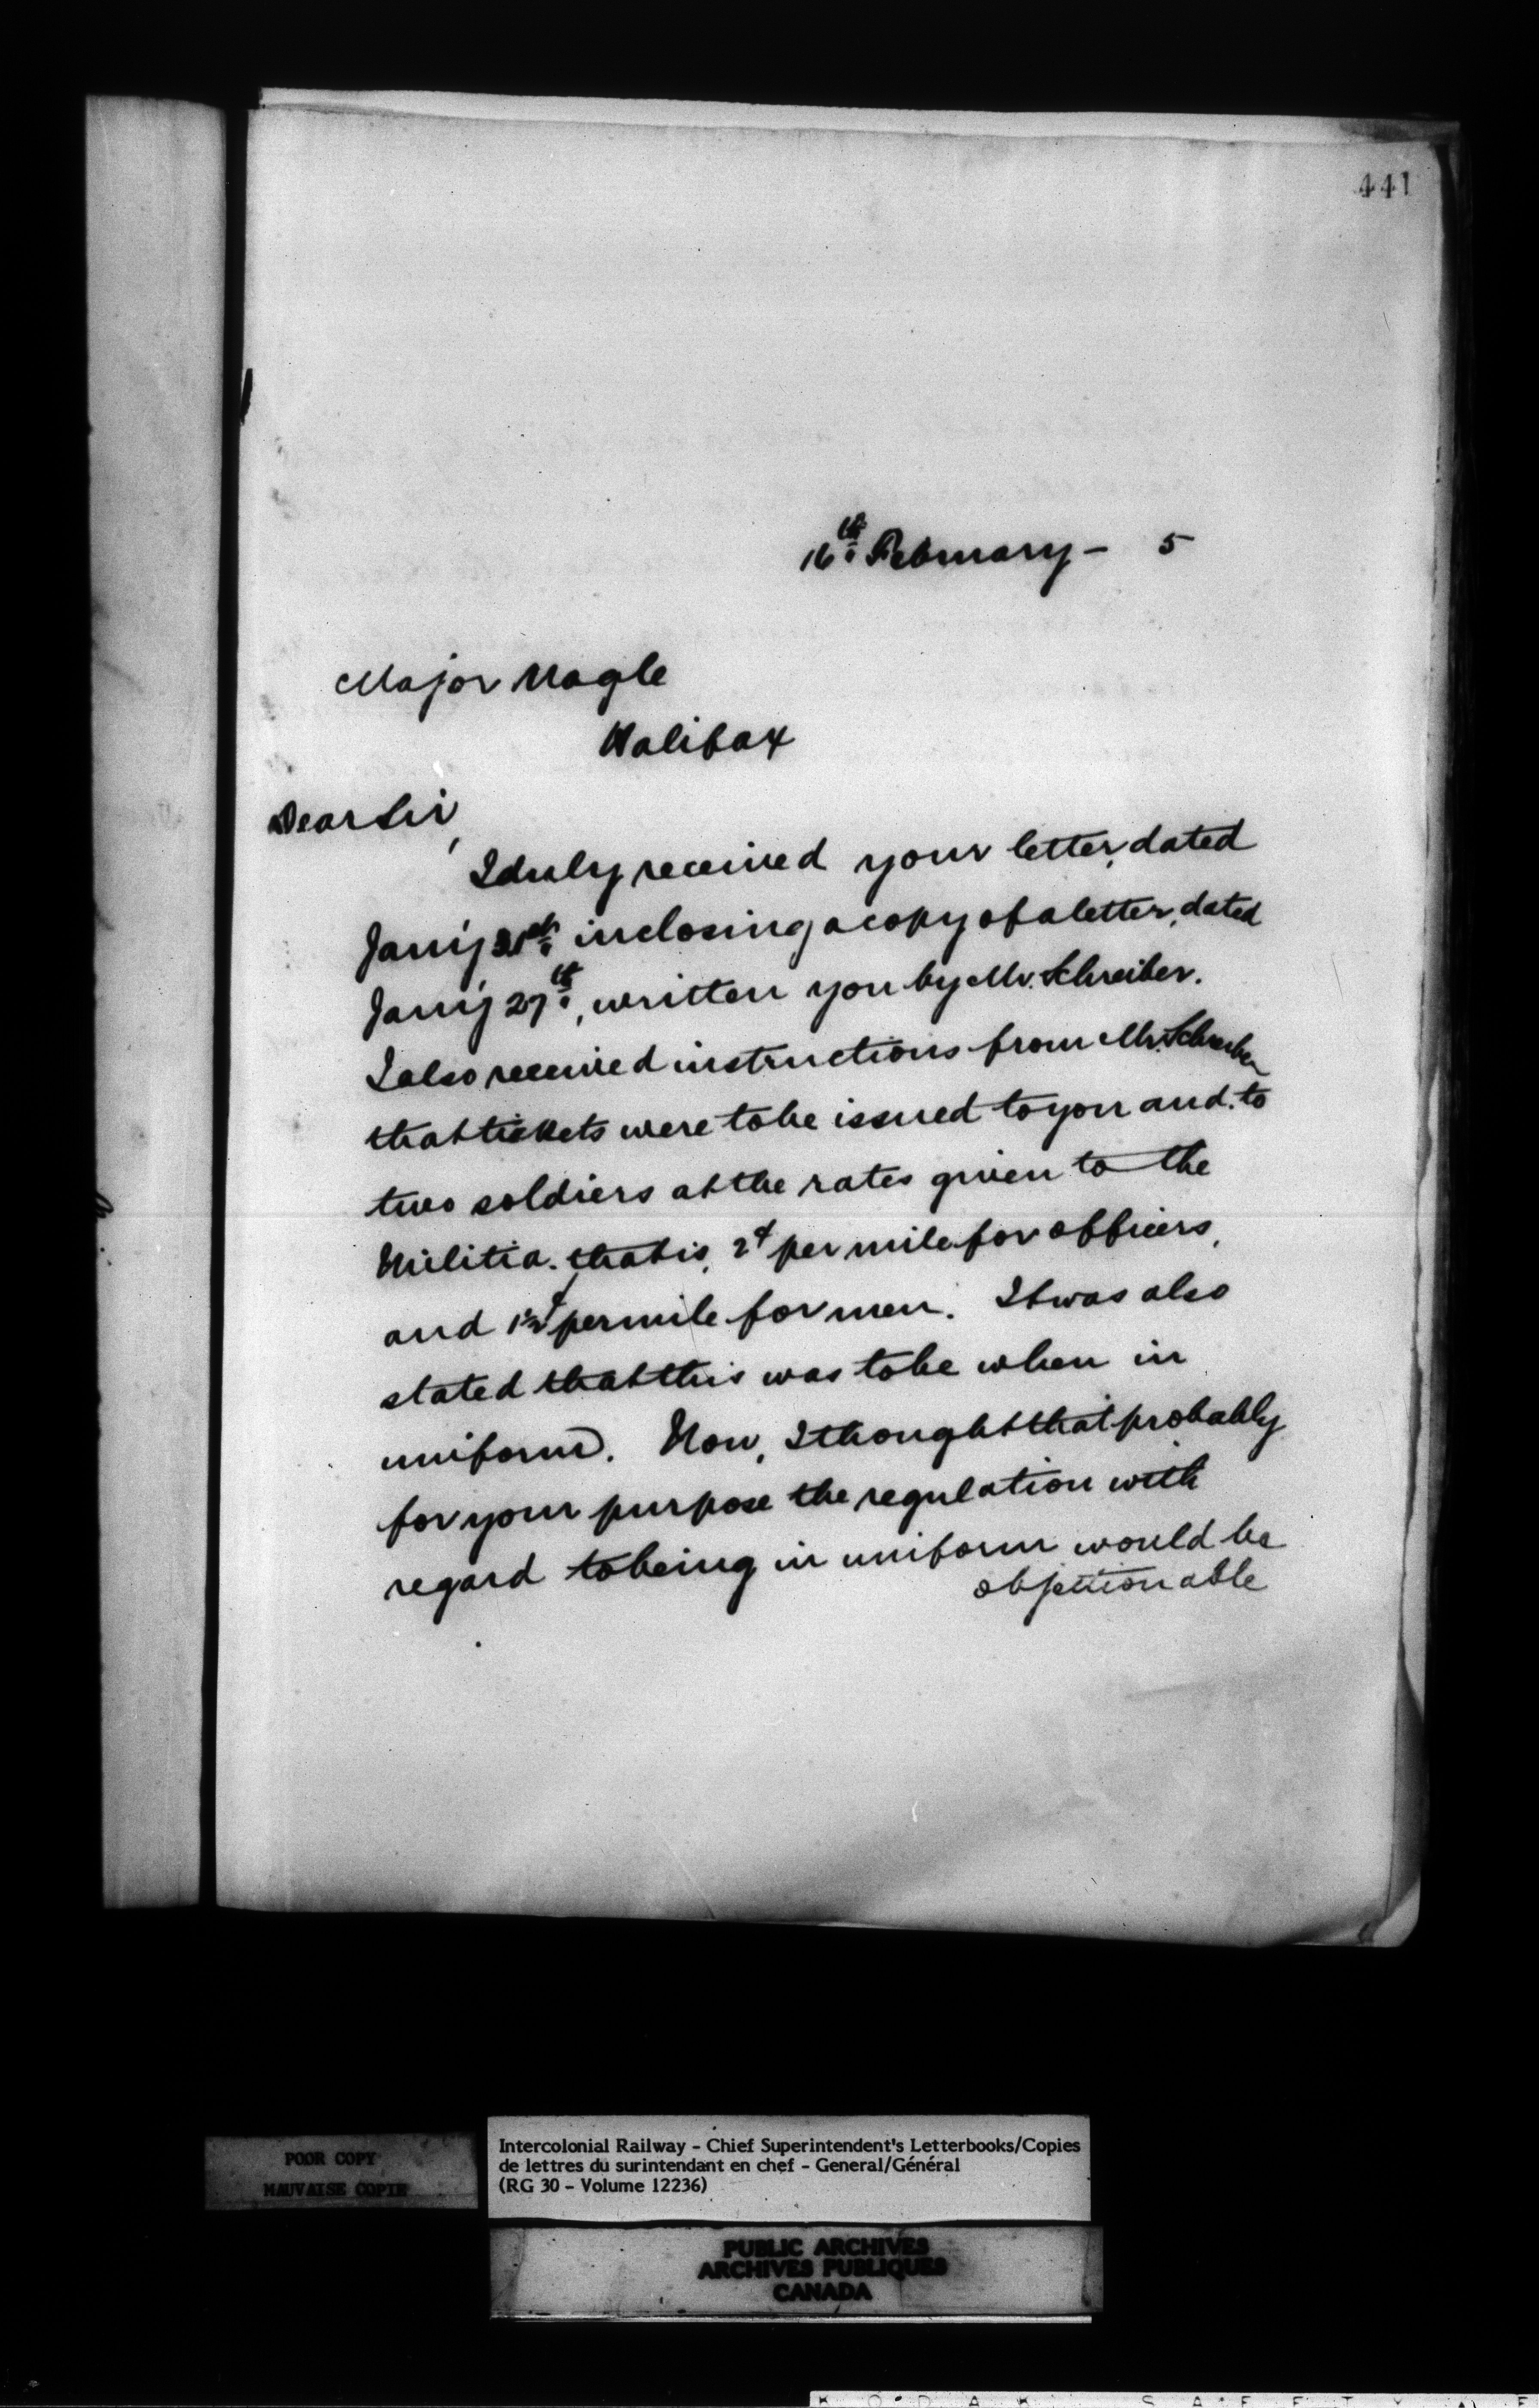 441
16th February - 5
Major Nagle
Halifax
Dear Sir,
I duly received your letter, dated
Jan'y 31st, inclosing a copy of a letter, dated
Jan'y 27th, written you by Mr. Schreiber.
I also received instructions from Mr. Schreiber
that tickets were to be issued to you and to
two soldiers at the rates given to the
Militia. that is, 2¢ per mile for officers,
and 1½¢ per mile for men. It was also
stated that this was to be when in
uniform. Now, I thought that probably
for your purpose the regulation with
regard to being in uniform would be
objectionable
POOR COPY
MAUVAISE COPIE
Intercolonial Railway - Chief Superintendent's Letterbooks/Copies
de lettres du surintendant en chef - General/Général
(RG 30 - Volume 12236)
PUBLIC ARCHIVES
ARCHIVES PUBLIQUES
CANADA